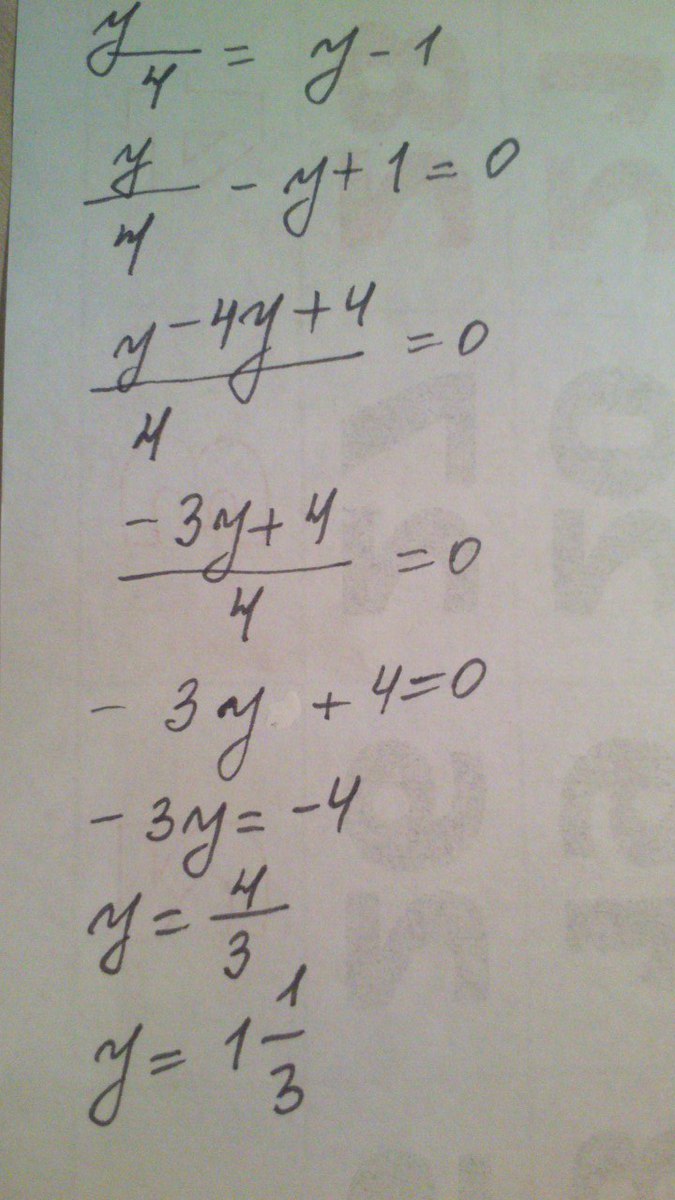 y/4 = y - 1
y/4 - y + 1 = 0
(y - 4y + 4)/4 = 0
(-3y + 4)/4 = 0
- 3y + 4 = 0
- 3y = -4
y = 4/3
y = 1 1/3